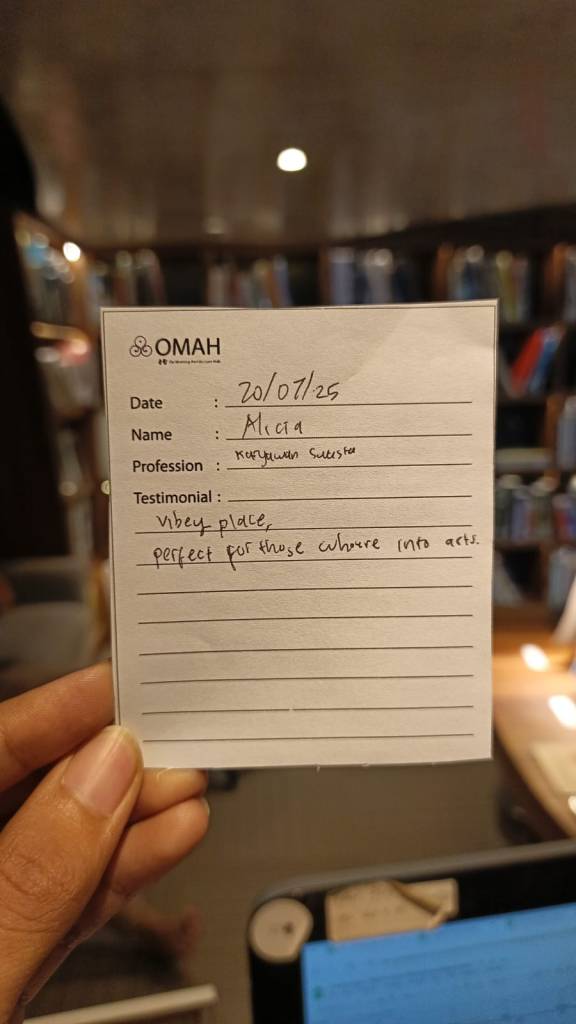 OMAH
Date : 20/07/25
Name : Alicia
Profession : Karyawan Swasta
Testimonial :
Vibey place,
perfect for those who're into arts.